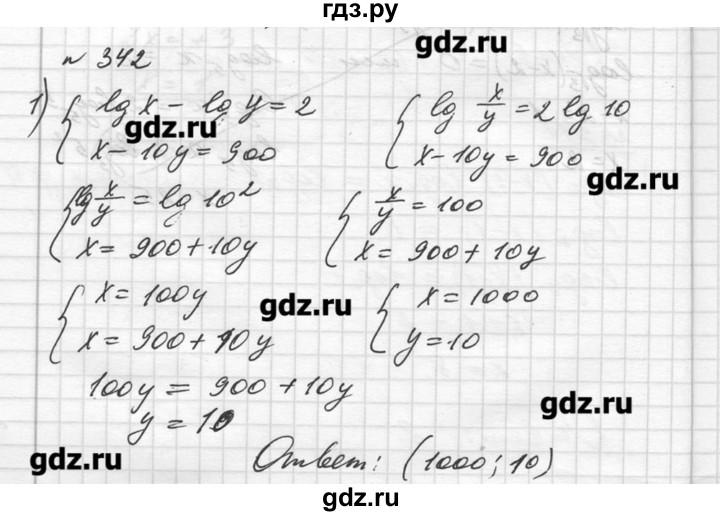 гдз.ру
№ 342
gdz.ru
1) { lg x − lg y = 2
x − 10y = 900
{ lg x/y = 2 lg 10
x − 10y = 900
gdz.ru
gdz.ru
{ lg x/y = lg 10²
x = 900 + 10y
{ x/y = 100
x = 900 + 10y
{ x = 100y
x = 900 + 10y
gdz.ru
{ x = 1000
y = 10
100y = 900 + 10y
y = 10
gdz.ru
gdz.ru
Ответ: (1000; 10)
gdz.ru